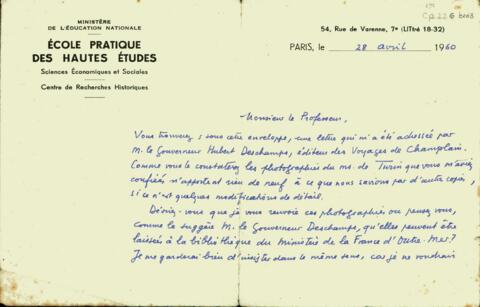 MINISTÈRE
DE L'ÉDUCATION NATIONALE
ÉCOLE PRATIQUE
DES HAUTES ÉTUDES
Sciences Économiques et Sociales
Centre de Recherches Historiques
54, Rue de Varenne, 7e (LITtré 18-32)
PARIS, le 28 avril 1960
Monsieur le Professeur,
Vous trouverez, sous cette enveloppe, une lettre qui m'a été adressée par
M. le Gouverneur Hubert Deschamps, éditeur des Voyages de Champlain.
Comme vous le constaterez les photographies du ms. de Turin que vous m'aviez
confiées n'apportent rien de neuf à ce que nous savions par d'autres copies,
si ce n'est quelques modifications de détail.
Désirez-vous que je vous renvoie ces photographies ou pensez-vous,
comme le suggère M. le Gouverneur Deschamps, qu'elles peuvent être
laissées à la bibliothèque du Ministère de la France d'Outre-Mer?
Je me garderai bien d'insister dans le même sens, car je ne voudrais